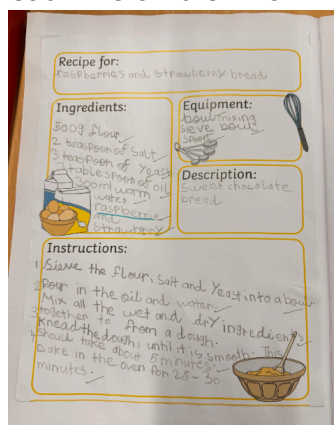 Recipe for:
raspberries and strawberry bread
Ingredients:
500g flour
2 teaspoon of salt
3 teaspoon of yeast
2 tablespoon of oil
300ml warm
water
raspberrie
and
strawberry
Equipment:
boul mixing
sieve bowl
spoon
Description:
sweet chocolate
bread
Instructions:
1 Sieve the flour, salt and yeast into a bowl.
2 Pour in the oil and water.
Mix all the wet and dry ingredients
3 together to from a dough.
knead the dough, until it is smooth. This
4 should take about 5 minutes.
Bake in the oven for 25-30
minutes.